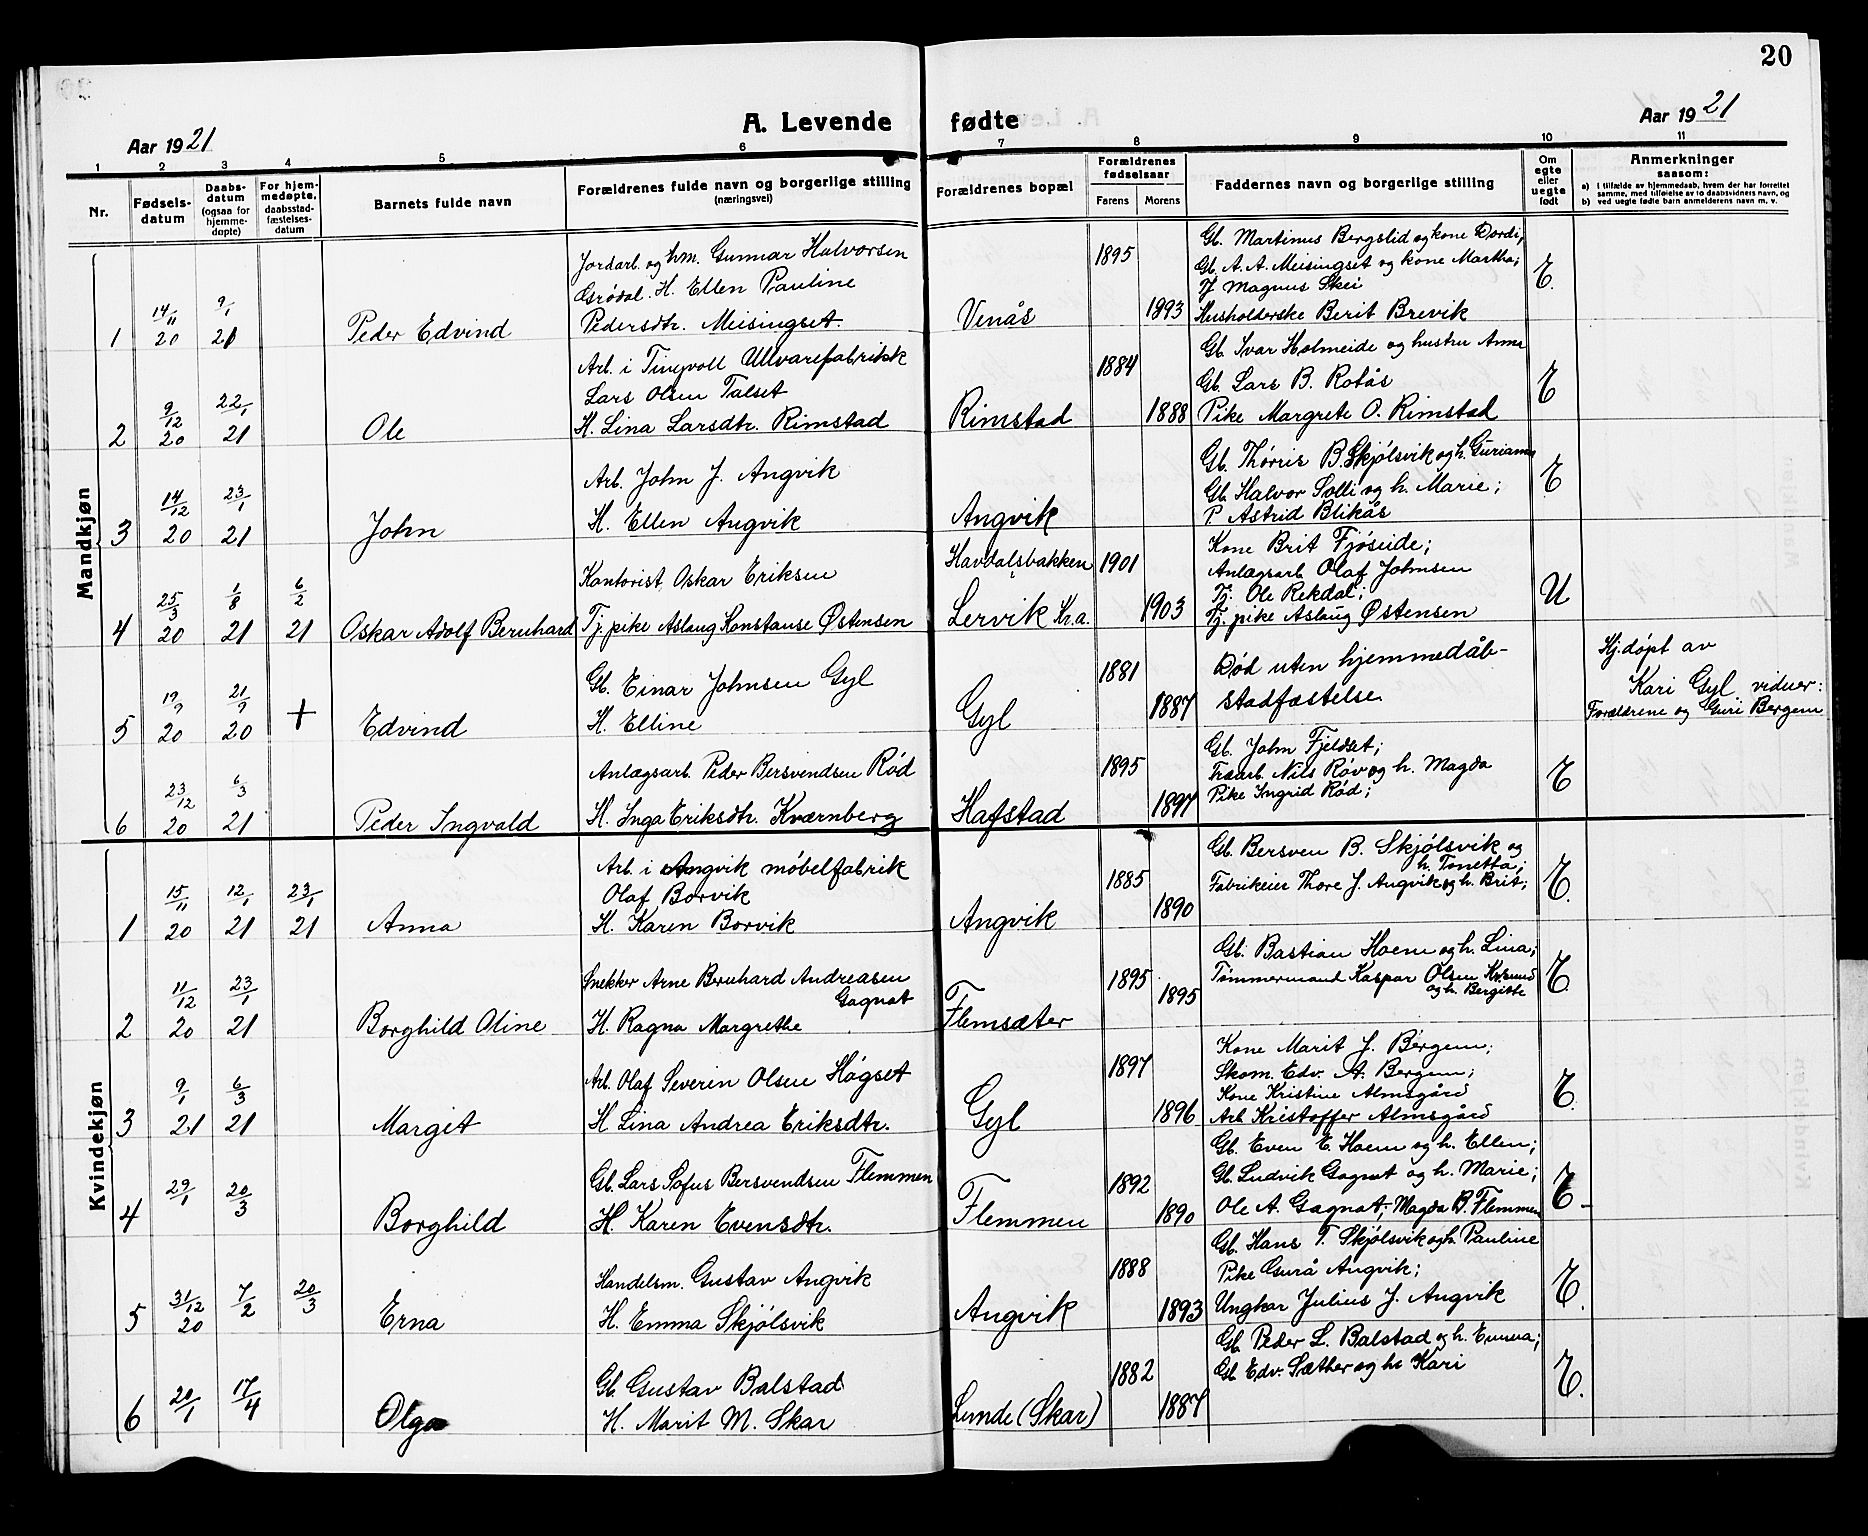 20
A. Levende fødte
Aar 1921
Aar 1921
1 2 3 4 5 6 7 8 9 10 11
Nr.
Fødsels-
datum
Daabs-
datum
(ogsaa for
hjemme-
døpte)
For hjem-
medøpte,
daabsstad-
fæstelses-
datum
Barnets fulde navn
Forældrenes fulde navn og borgerlige stilling
(næringsvei)
Forældrenes bopæl
Forældrenes
fødselsaar
Farens Morens
Faddernes navn og borgerlige stilling
Om
egte
eller
uegte
født
Anmerkninger
saasom:
a) i tilfælde av hjemmedaab, hvem der har forrettet
samme, med tilføielse av to daabsvidners navn, og
b) ved uegte fødte barn anmelderens navn m. v.
Mandkjøn
1 14/11 20 9/1 21 Peder Edvind
Jordarb. og hm. Gunnar Halvorsen
Grödal. H. Ellen Pauline
Pedersdtr. Meisingset.
Venås 1895 1893
Gb. Martinus Bergslid og kone Dordi,
Gb. A. A. Meisingset og kone Martha;
Magnus Skei
Husholderske Berit Brevik
E.
2 9/12 20 22/1 21 Ole
Arb. i Tingvoll Ullvarefabrikk
Lars Olsen Talset
H. Lina Larsdtr. Rimstad
Rimstad 1884 1888
Gb. Ivar Holmeide og hustru Anna
Gb. Lars B. Rotås
Pike Margrete O. Rimstad
E
3 14/12 20 23/1 21 John
Arb. John J. Angvik
H. Ellen Angvik
Angvik
Gb. Thörris B. Skjölsvik og h. Gurianna
Gb. Halvor Solli og h. Marie;
P Astrid Blikås
E
4 25/3 20 1/8 21 6/2 21 Oskar Adolf Bernhard
Kontorist, Oskar Eriksen
Tj. pike Aslaug Konstanse Østensen
Havdalsbakken
Lervik Kr.a.
1901 1903
Kone Brit Fjöseide;
Anlægsarb. Olaf Johnsen
Tj. Ole Rekdal;
Tj. pike Aslaug Østensen
U
5 19/9 20 21/9 20 + Edvind
Gb. Einar Johnsen Gyl
H. Elline
Gyl 1881 1887
Død uten hjemmedåb-
stadfæstelse
Hj.döpt av
Kari Gyl. vidner:
Forældrene og Guri Bergem
6 23/12 20 6/3 21 Peder Ingvald
Anlægsarb. Peder Bersvendsen Röd
H. Inga Eriksdtr. Kværnberg
Hafstad 1895 1897
Gb. John Fjeldset;
Træarb. Nils Röv og h. Magda
Pike Ingrid Röd;
E
Kvindekjøn
1 15/11 20 12/1 21 23/1 21 Anna
Arb. i Angvik möbelfabrik
Olaf Borvik
H. Karen Borvik
Angvik 1885 1890
Gb. Bersven B. Skjölsvik og
h. Tonetta;
Fabrikeier Thore J. Angvik og h. Brit;
E.
2 11/12 20 23/1 21 Borghild Oline
Snekker Arne Bernhard Andreasen
Gagnat
H. Ragna Margrethe
Flemsæter 1895 1895
Gb. Bastian Hoem og h. Lina;
Tömmermand Kaspar Olsen Kr.sund
og h. Bergitte
E.
3 9/1 21 6/3 21 Margit
Arb. Olaf Severin Olsen Högset
H Lina Andrea Eriksdtr.
Gyl 1897 1896
Kone Marit J. Bergem;
Skom. Edv. A. Bergem;
Kone Kristine Almsgård
Arb Kristoffer Almsgård
E.
4 29/1 20/3 Borghild
Gb. Lars Sofus Bersvendsen Flemmen
H. Karen Evensdtr.
Flemmen 1892 1890
Gb. Even E. Hoem og h. Ellen;
Gb. Ludvik Gagnat og h. Marie;
Ole A. Gagnat; Magda B. Flemmen
E-
5 31/12 20 7/2 20/3 Erna
Handelsm. Gustav Angvik
H. Emma Skjölsvik
Angvik 1888 1893
Gb. Hans T. Skjölsvik og h. Pauline
Pike Gurå Angvik;
Ungkar Julius J. Angvik
E.
6 20/1 17/4 Olga
Gb. Gustav Balstad
H. Marit M. Skar
Lunde (Skar) 1882 1887
Gb. Peder L. Balstad og h. Emma;
Gb Edv. Sæther og h. Kari
E.